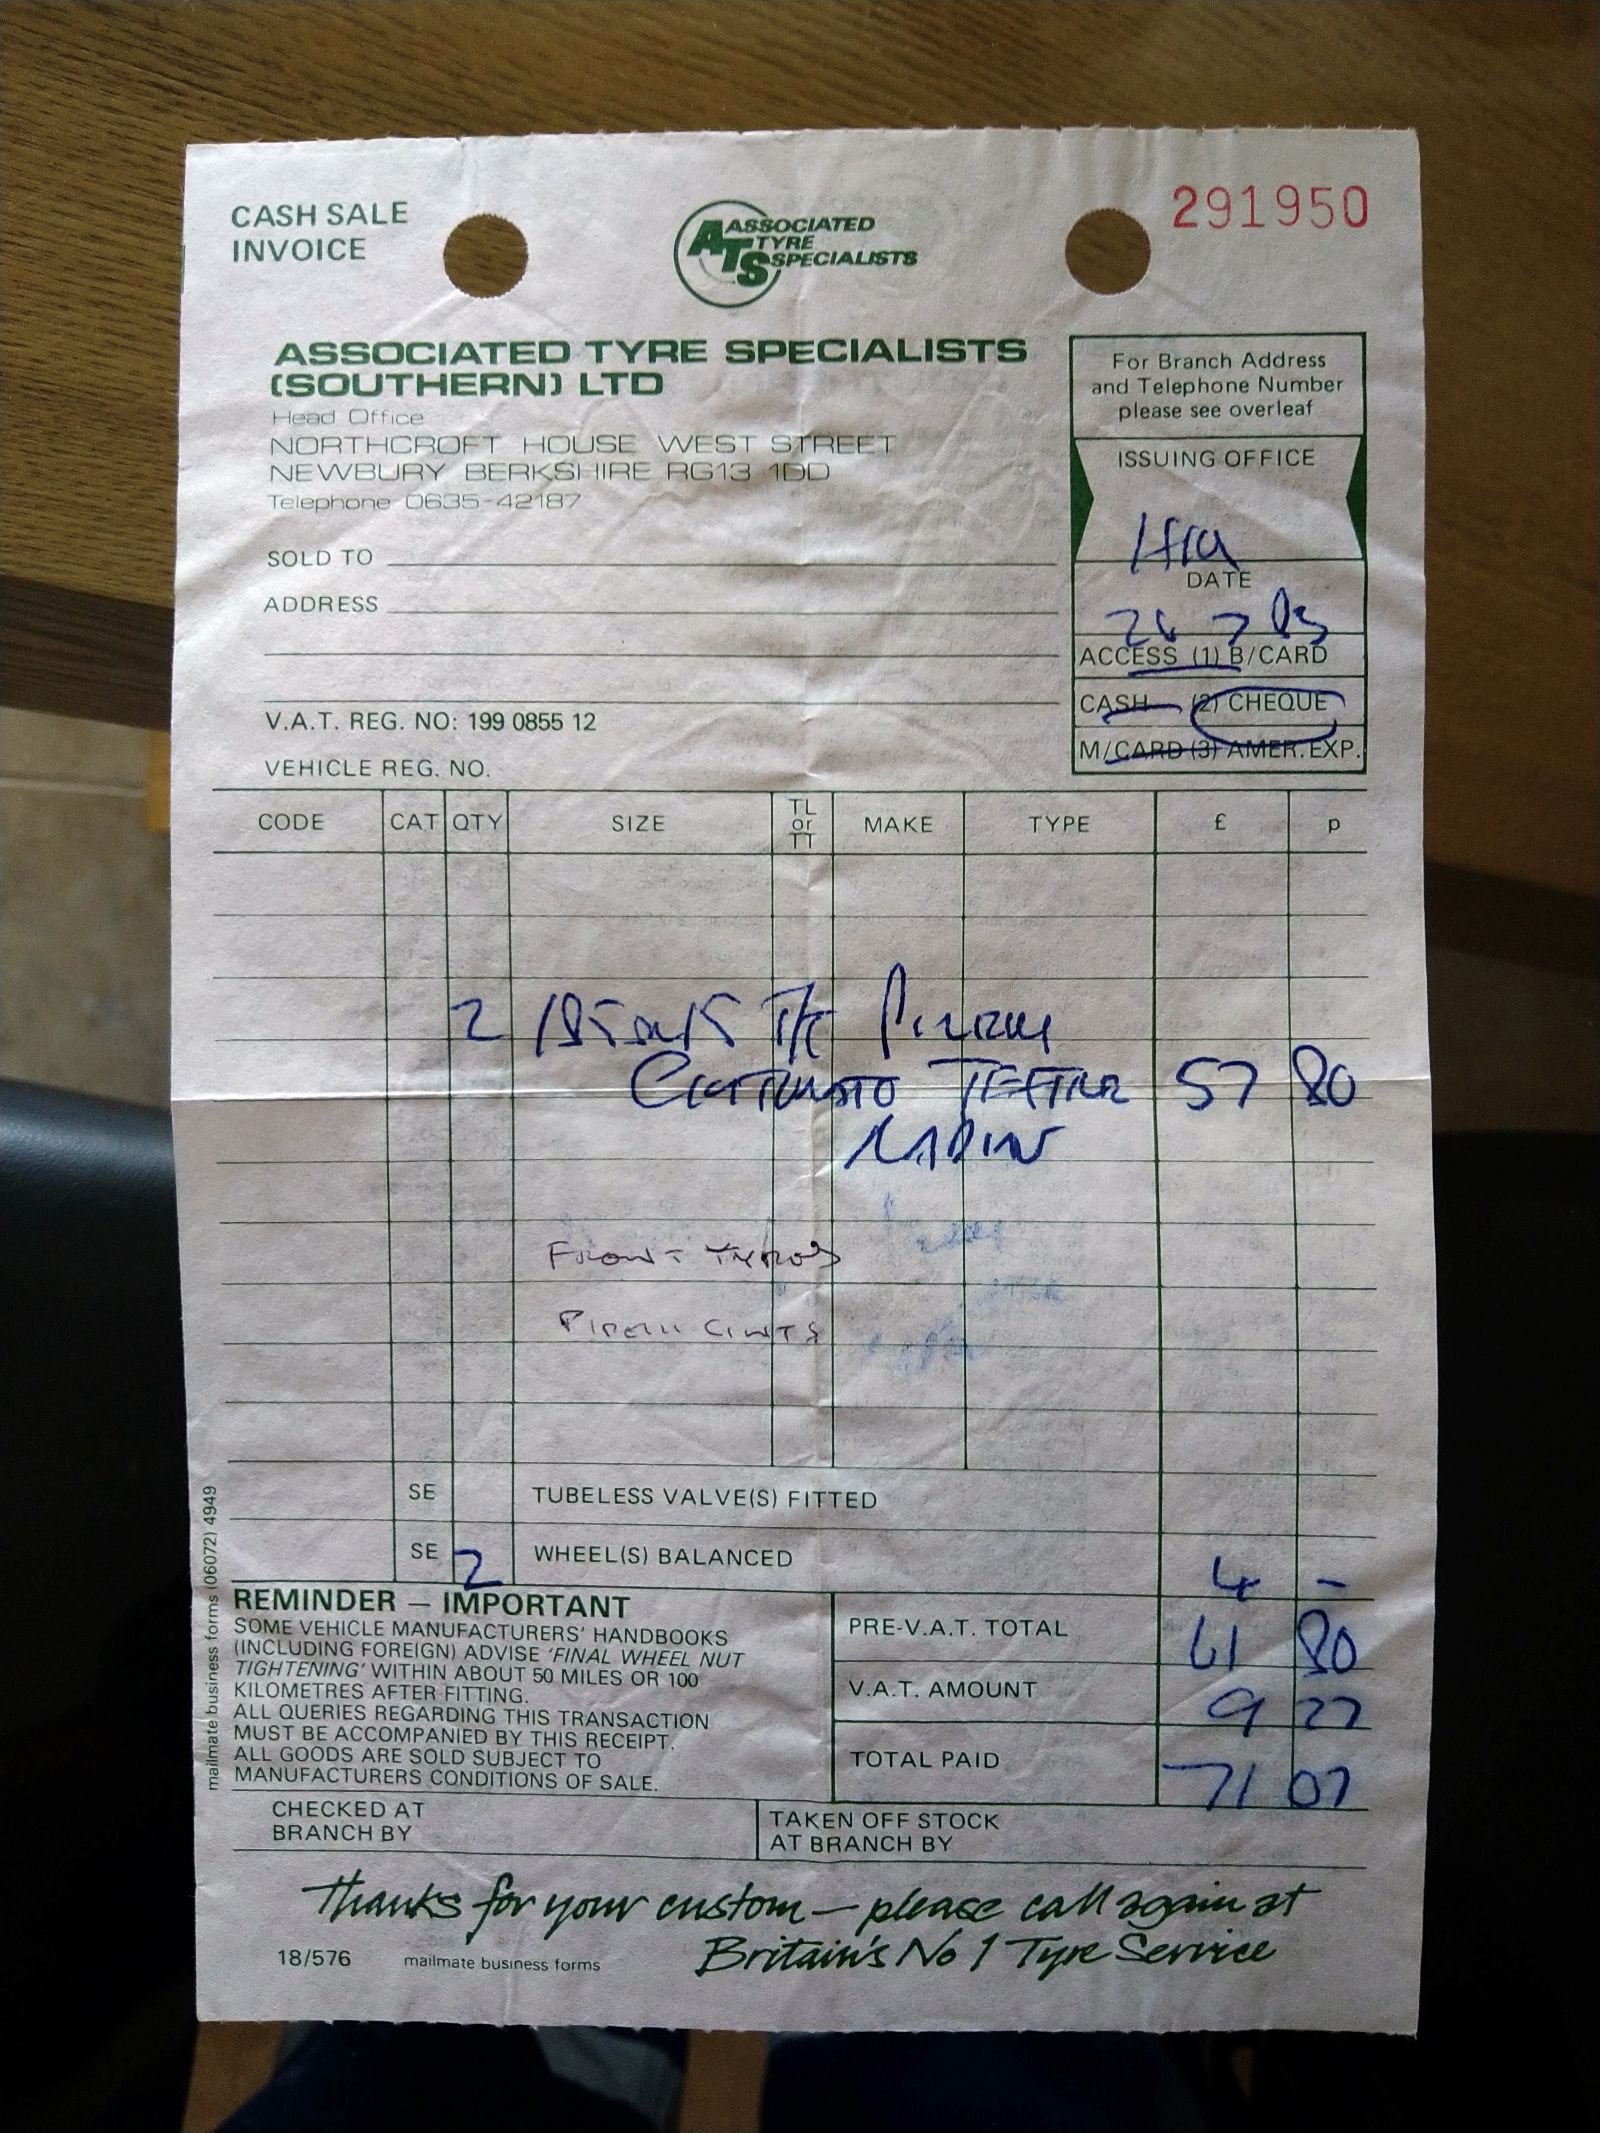 CASH SALE
INVOICE
ATS ASSOCIATED
TYRE
SPECIALISTS
291950
ASSOCIATED TYRE SPECIALISTS
(SOUTHERN) LTD
Head Office
NORTHCROFT HOUSE WEST STREET
NEWBURY BERKSHIRE RG13 1DD
Telephone 0635-42187
For Branch Address
and Telephone Number
please see overleaf
ISSUING OFFICE
DATE
SOLD TO
ADDRESS
7
ACCESS (1) B/CARD
CASH (2) CHEQUE
M/CARD (3) AMER. EXP.
V.A.T. REG. NO: 199 0855 12
VEHICLE REG. NO.
CODE CAT QTY SIZE TL or TT MAKE TYPE £ p
2
57 80
FRONT TYRES
PIRELLI
SE TUBELESS VALVE(S) FITTED
SE 2 WHEEL(S) BALANCED 4 -
REMINDER – IMPORTANT
SOME VEHICLE MANUFACTURERS' HANDBOOKS
(INCLUDING FOREIGN) ADVISE 'FINAL WHEEL NUT
TIGHTENING' WITHIN ABOUT 50 MILES OR 100
KILOMETRES AFTER FITTING.
ALL QUERIES REGARDING THIS TRANSACTION
MUST BE ACCOMPANIED BY THIS RECEIPT.
ALL GOODS ARE SOLD SUBJECT TO
MANUFACTURERS CONDITIONS OF SALE.
PRE-V.A.T. TOTAL 61 80
V.A.T. AMOUNT 9 27
TOTAL PAID 71 07
CHECKED AT
BRANCH BY
TAKEN OFF STOCK
AT BRANCH BY
Thanks for your custom – please call again at
Britain's No 1 Tyre Service
18/576 mailmate business forms
mailmate business forms (06072) 4949